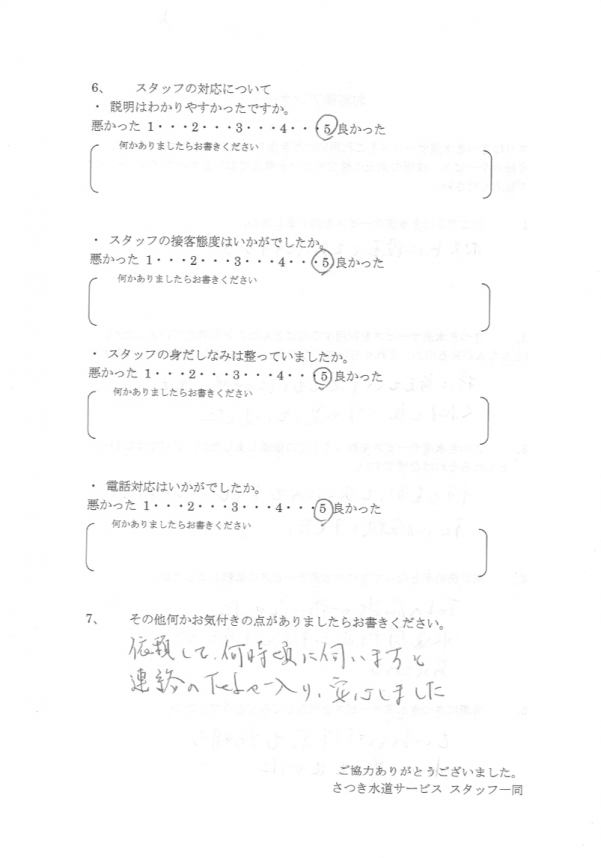 6、 スタッフの対応について
・ 説明はわかりやすかったですか。
悪かった 1・・・2・・・3・・・4・・・5 良かった
何かありましたらお書きください
・ スタッフの接客態度はいかがでしたか。
悪かった 1・・・2・・・3・・・4・・・5 良かった
何かありましたらお書きください
・ スタッフの身だしなみは整っていましたか。
悪かった 1・・・2・・・3・・・4・・・5 良かった
何かありましたらお書きください
・ 電話対応はいかがでしたか。
悪かった 1・・・2・・・3・・・4・・・5 良かった
何かありましたらお書きください
7、 その他何かお気付きの点がありましたらお書きください。
依頼して、何時頃に伺いますと
連絡のTelが入り、安心しました
ご協力ありがとうございました。
さつき水道サービス スタッフ一同